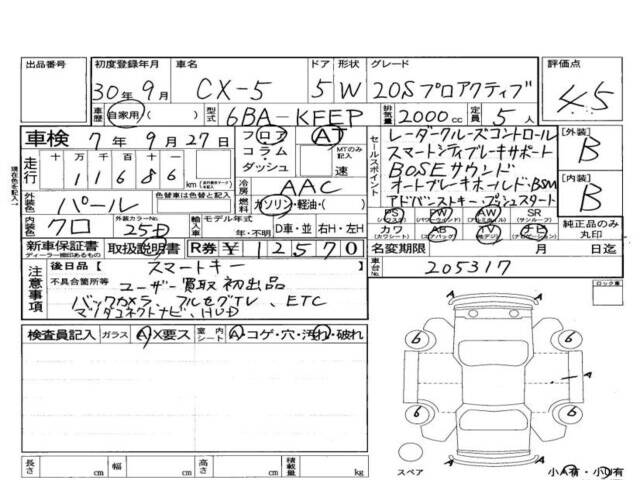 出品番号 初度登録年月 車名 ドア 形状 グレード 評価点
30年 9月 CX-5 5 W 20Sプロアクティブ 4.5
車歴 自家用 ( ) 型式 6BA-KFEP 排気量 2000cc 定員 5人
車検 7年 9月 27日 フロア AT セールスポイント レーダークルーズコントロール 【外装】 B
コラム MTのみ記入 スマートシティブレーキサポート
走行 十万千百十一 11686 km ダッシュ 速 BOSEサウンド
冷房 AAC オートブレーキホールド・BSM 【内装】 B
外装色 パール 色替車は色替と記入 燃料 ガソリン・軽油・( ) アドバンストキー・プッシュスタート
PS PW AW SR 純正品のみ丸印
内装色 クロ 外装カラーNo. 25D 輸入車 モデル年式 年・不明 D車・並 右H・左H カワ AB TV ナビ
新車保証書 ディーラー捺印あるもの 取扱説明書 R券 ¥12570 名変期限 月 日迄
注意事項 後日品 スマートキー 車台No. 205317
不具合箇所等 ユーザー買取初出品
バックカメラ、フルセグTV、ETC ロック車
マツダコネクトナビ、HUD
検査員記入 ガラス A X要ス 室内シート A・コゲ・穴・汚れ・破れ A A
6 6
A
6 6
A A
スペア 小A有・小U有
長さ cm 幅 cm 高さ cm 積載量 kg